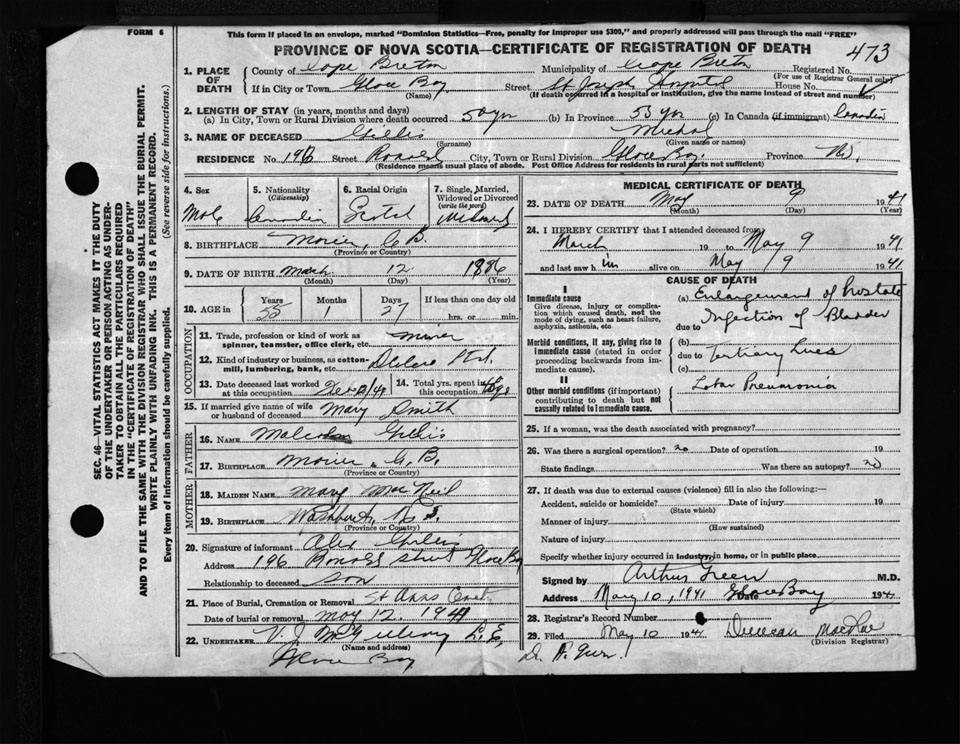 FORM 6
This form if placed in an envelope, marked "Dominion Statistics—Free, penalty for improper use $300," and properly addressed will pass through the mail "FREE"
PROVINCE OF NOVA SCOTIA—CERTIFICATE OF REGISTRATION OF DEATH
473
1. PLACE OF DEATH
County of Cape Breton Municipality of Cape Breton Registered No.
(For use of Registrar General only)
If in City or Town Glace Bay Street St Joseph Hospital House No.
(Name) (If death occurred in a hospital or institution, give the name instead of street and number)
2. LENGTH OF STAY (in years, months and days)
(a) In City, Town or Rural Division where death occurred 50 yr (b) In Province 55 yrs (c) In Canada (if immigrant) Canadian
3. NAME OF DECEASED Gillis Michal
(Surname) (Given name or names)
RESIDENCE No. 196 Street City, Town or Rural Division Glace Bay. Province
(Residence means usual place of abode. Post Office Address for residents in rural parts not sufficient)
4. Sex
Male
5. Nationality
(Citizenship)
Canadian
6. Racial Origin
Scotch
7. Single, Married, Widowed or Divorced
(write the word)
Widowed
8. BIRTHPLACE C B.
(Province or Country)
9. DATE OF BIRTH March 12 1886
(Month) (Day) (Year)
10. AGE in Years Months Days If less than one day old
55 1 27 hrs. or min.
OCCUPATION
11. Trade, profession or kind of work as spinner, teamster, office clerk, etc. miner
12. Kind of industry or business, as cotton-mill, lumbering, bank, etc.
13. Date deceased last worked at this occupation
14. Total yrs. spent in this occupation
15. If married give name of wife or husband of deceased Mary Smith
FATHER
16. NAME Malcolm Gillis
17. BIRTHPLACE C. B.
(Province or Country)
MOTHER
18. MAIDEN NAME Mary MacNeil
19. BIRTHPLACE N. S.
(Province or Country)
20. Signature of informant Alex Gillis
Address 196 street Glace Bay
Relationship to deceased son
21. Place of Burial, Cremation or Removal St Anns
Date of burial or removal May 12. 1941
22. UNDERTAKER V. J.
(Name and address)
Glace Bay
MEDICAL CERTIFICATE OF DEATH
23. DATE OF DEATH May 9 1941
(Month) (Day) (Year)
24. I HEREBY CERTIFY that I attended deceased from
March 19 to May 9 1941
and last saw him alive on May 9 1941.
CAUSE OF DEATH
I
Immediate cause
Give disease, injury or complication which caused death, not the mode of dying, such as heart failure, asphyxia, asthenia, etc.
(a) Enlargement of Prostate
due to Infection of Bladder
Morbid conditions, if any, giving rise to immediate cause (stated in order proceeding backwards from immediate cause).
(b)
due to Tertiary Lues
(c)
II
Other morbid conditions (if important) contributing to death but not causally related to immediate cause.
Lobar Pneumonia
25. If a woman, was the death associated with pregnancy?
26. Was there a surgical operation? no Date of operation 19
State findings Was there an autopsy? no
27. If death was due to external causes (violence) fill in also the following:—
Accident, suicide or homicide? Date of injury 19
(State which)
Manner of injury
(How sustained)
Nature of injury
Specify whether injury occurred in industry, in home, or in public place
Signed by Arthur Green M.D.
Address May 10, 1941 Date Glace Bay 194
28. Registrar's Record Number
29. Filed May 10 1941 Duncan MacRae
(Division Registrar)
SEC. 46—VITAL STATISTICS ACT MAKES IT THE DUTY
OF THE UNDERTAKER OR PERSON ACTING AS UNDER-
TAKER TO OBTAIN ALL THE PARTICULARS REQUIRED
IN THE "CERTIFICATE OF REGISTRATION OF DEATH"
AND TO FILE THE SAME WITH THE DIVISION REGISTRAR WHO SHALL ISSUE THE BURIAL PERMIT.
WRITE PLAINLY WITH UNFADING INK. THIS IS A PERMANENT RECORD.
Every item of information should be carefully supplied. (See reverse side for instructions.)